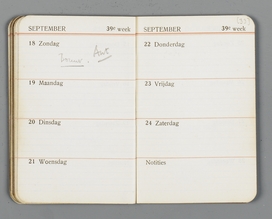 SEPTEMBER 39e week
18 Zondag
19 Maandag
20 Dinsdag
21 Woensdag
SEPTEMBER 39e week
22 Donderdag
23 Vrijdag
24 Zaterdag
Notities